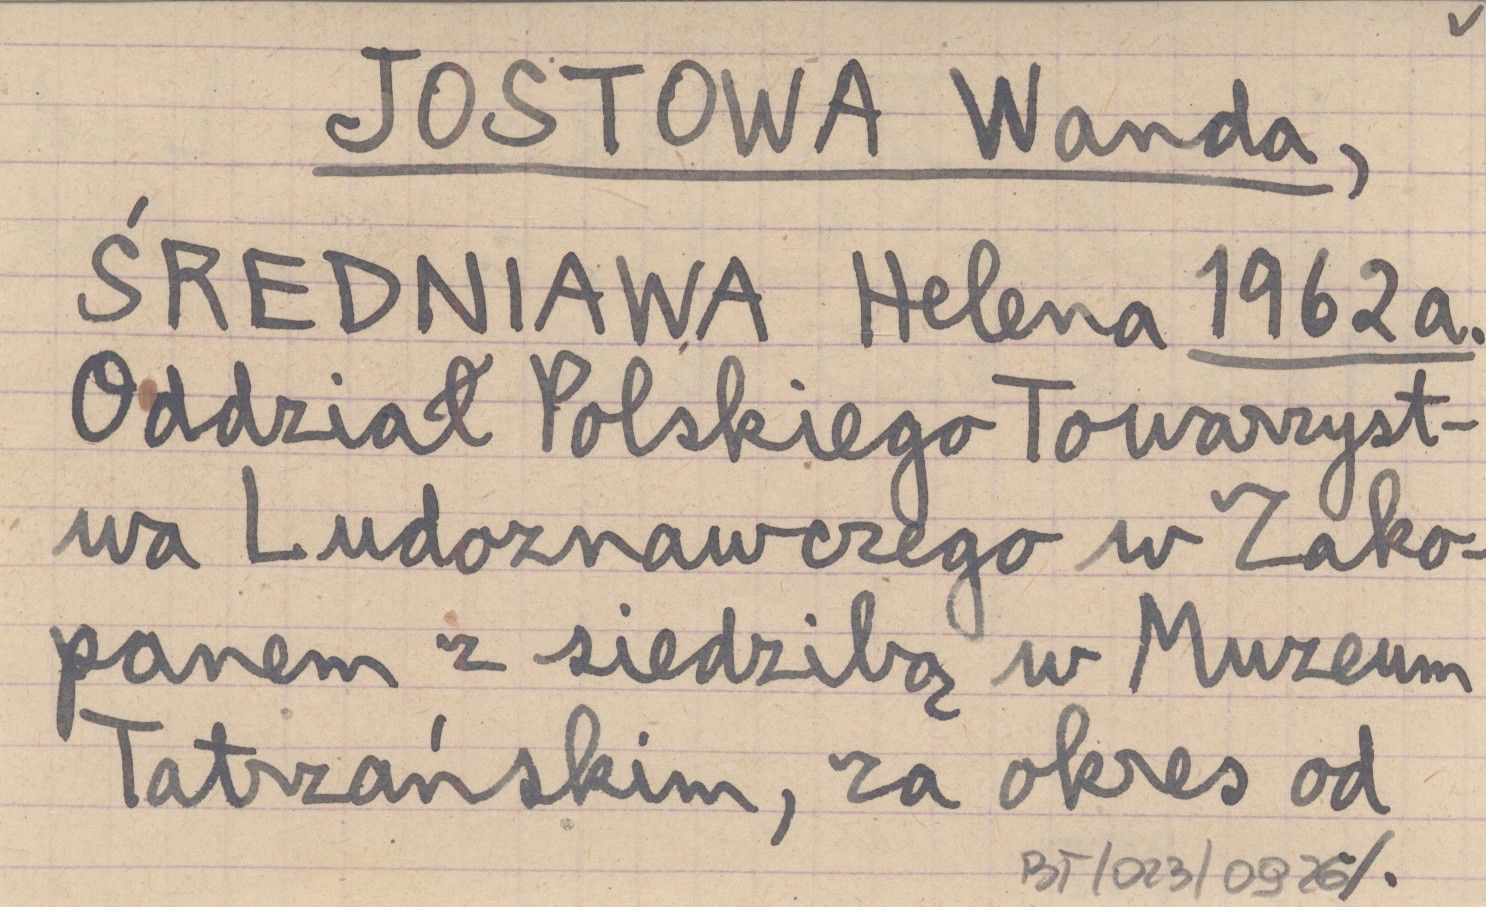 JOSTOWA Wanda,
ŚREDNIAWA Helena 1962a.
Oddział Polskiego Towarzyst-
wa Ludoznawczego w Zako-
panem z siedzibą w Muzeum
Tatrzańskim, za okres od
BT/023/0926/.